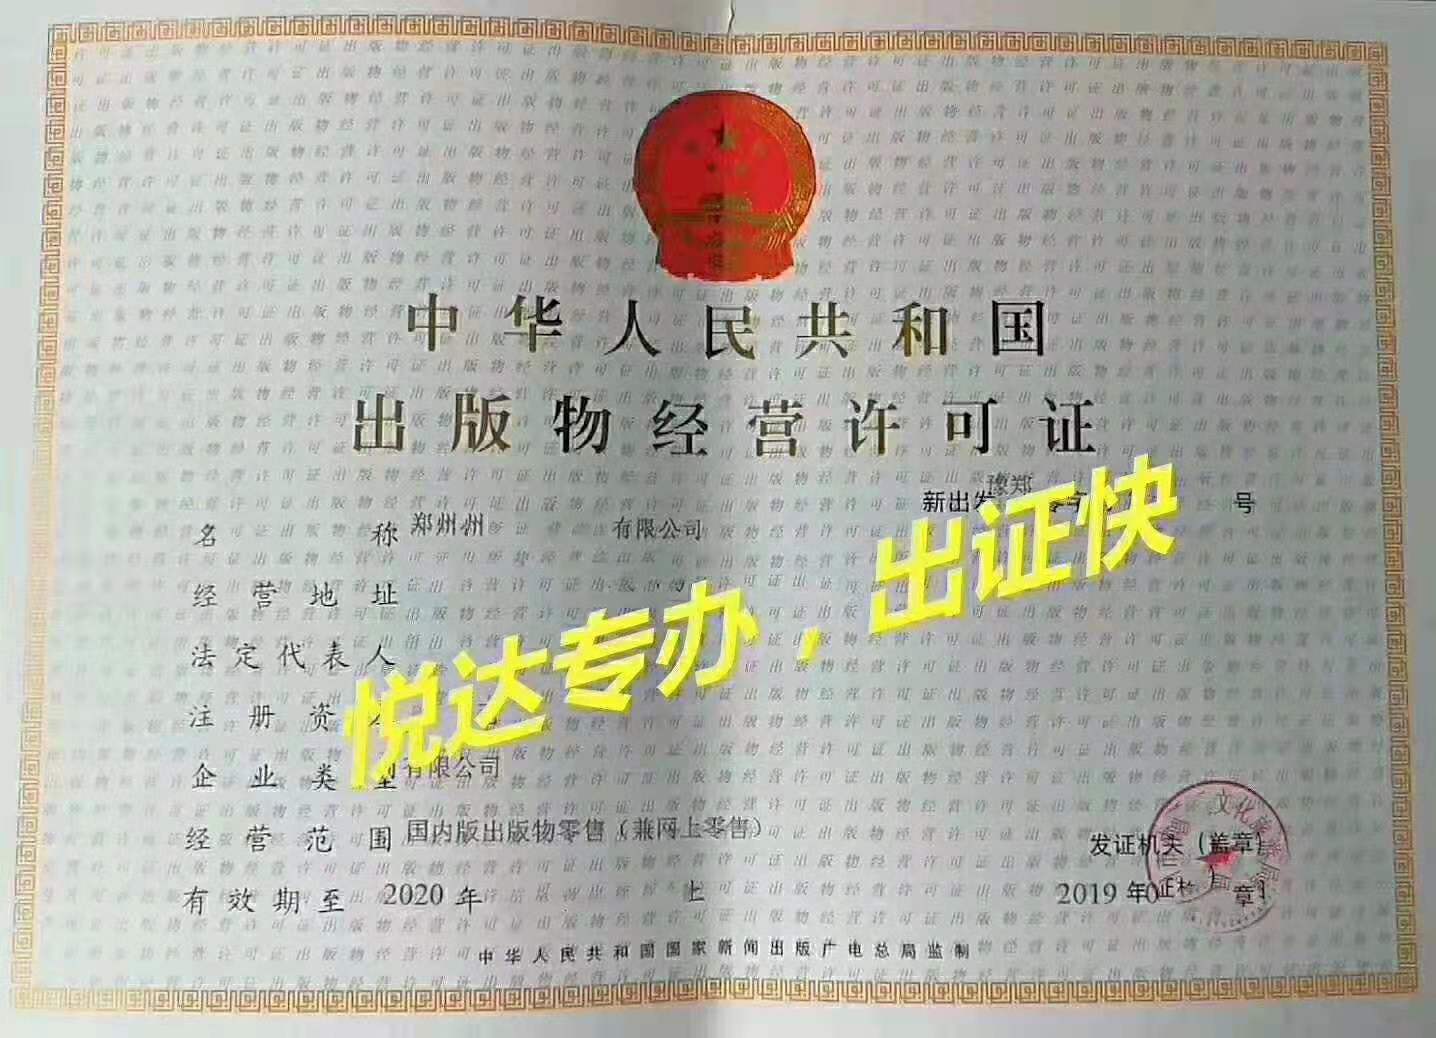 中华人民共和国
出版物经营许可证
豫郑
新出发 号
名称 郑州州 有限公司
经营地址
悦达专办，出证快
法定代表人
注册资
企业类型 有限公司
经营范围 国内版出版物零售（兼网上零售）
发证机关（盖章）
有效期至 2020 年 止
2019 年
中华人民共和国国家新闻出版广电总局监制